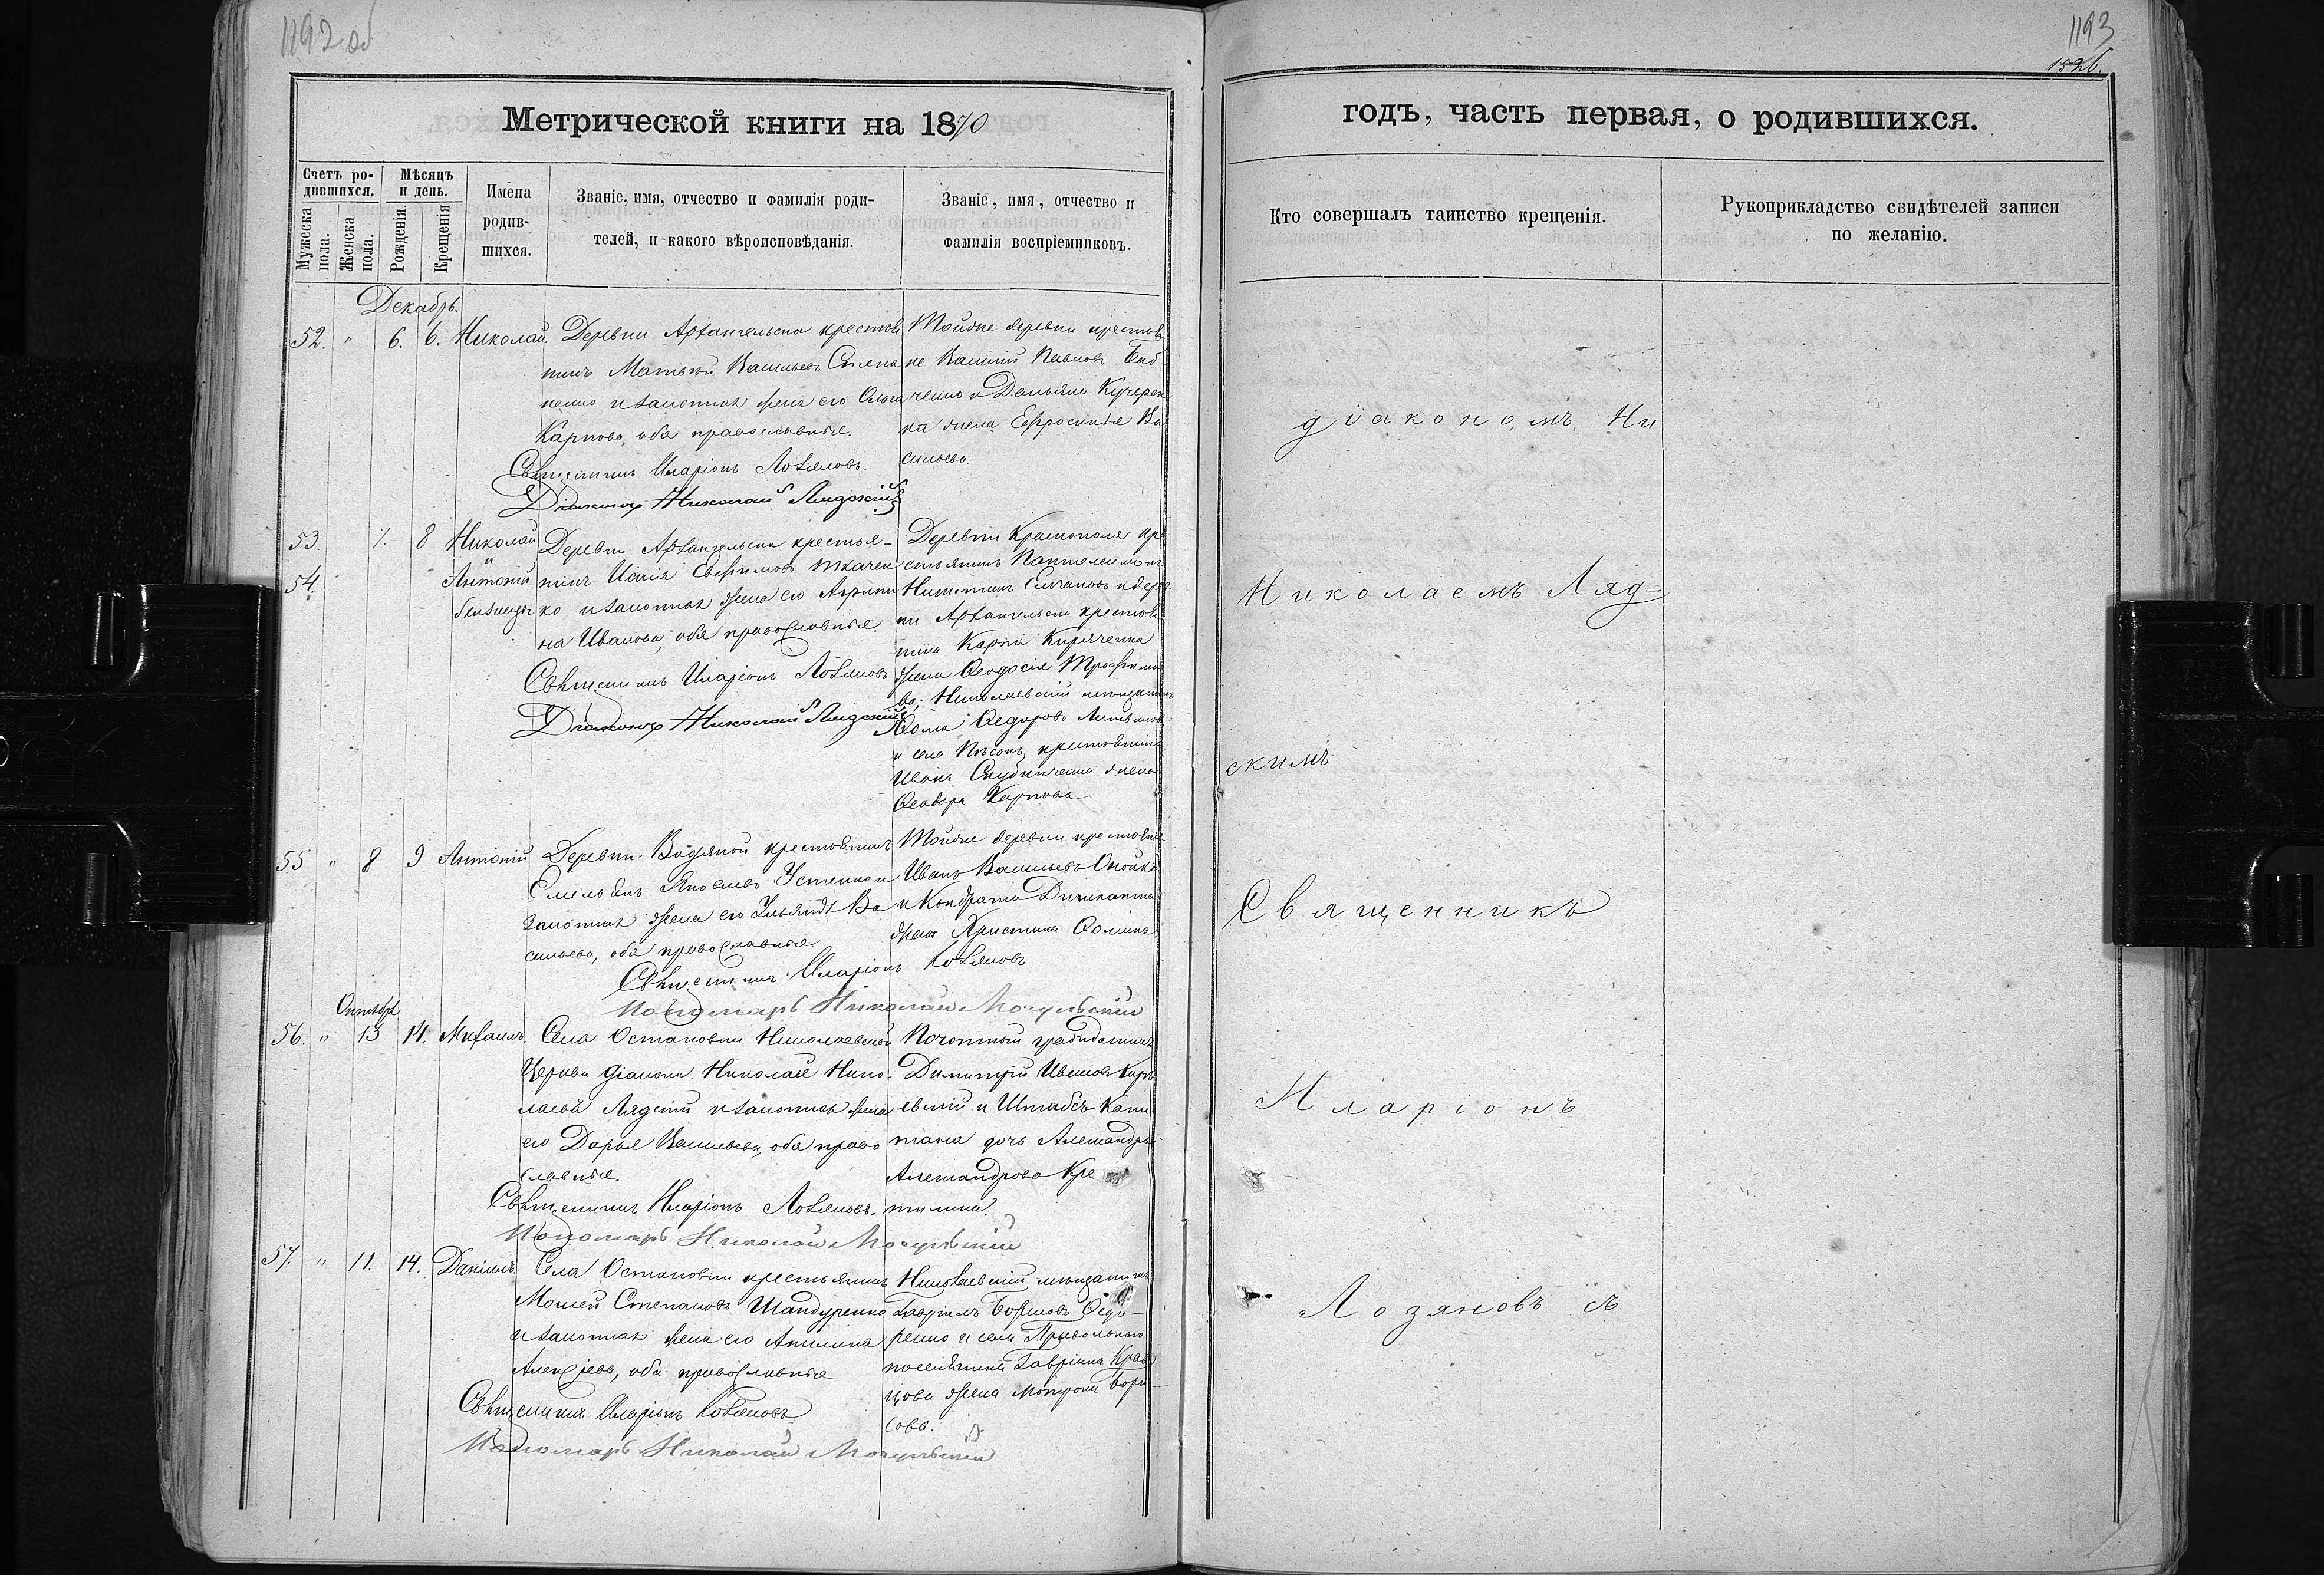 1192 об
1193
1526.
Метрической книги на 1870
годъ, часть первая, о родившихся.
Счетъ ро-
дившихся.
Мужеска
пола.
Женска
пола.
Мѣсяцъ
и день.
Рожденія.
Крещенія
Имена
родив-
шихся.
Званіе, имя, отчество и фамилія роди-
телей, и какого вѣроисповѣданія.
Званіе, имя, отчество и
фамилія воспріемниковъ.
Кто совершалъ таинство крещенія.
Рукоприкладство свидѣтелей записи
по желанію.
Декабрь.
52. " 6. 6. Николай.
Деревни Архангельска крестья
нинъ Матвѣй Васильевъ Степа
ненко и законная жена его Ольга
Карпова, оба православные.
Священникъ Иларіонъ Лозяновъ.
Діаконъ Николай Лядскій
Тойже деревни крестья
не Василій Павловъ
ченко и Демьяна Кучерен
ка жена Ефросинія Ва
сильева
53. 7. 8 Николай
и
54. Антоній
близнецы
Деревни Архангельска крестья-
нинъ Исаія Ткачен
ко и законная жена его Агрипи
на Иванова, оба православные.
Священникъ Иларіонъ Лозяновъ
Діаконъ Николай Лядскій
Деревни Краснополя кре
стьянинъ Пантелеимонъ
Никитинъ и дерев
ни Архангельска крестья
нина Карпа Кириченка
жена Феодосія Трофимо
ва; Николаевскій мещанинъ
Фома Федоровъ
и села Пѣсокъ крестьянина
Ивана жена
Феодора Карпова
55 " 8 9 Антоній
Деревни Водяной крестьянинъ
Емельянъ Яковлевъ Устенко и
законная жена его Ульянія Ва
сильева, оба православные.
Священникъ Иларіонъ Лозяновъ
Пономарь Николай Мочульскій
Тойже деревни крестьяне
Иванъ Васильевъ Онойко
и Кондрата Диканта
жена Христина Фомина
Октябрь
56. " 13 14. Михаилъ.
Села Остановки Николаевской
Церкви діаконъ Николай Нико-
лаевъ Лядскій и законная жена
его Дарья Васильева, оба право
славные.
Священникъ Иларіонъ Лозяновъ.
Пономарь Николай Мочульскій
Почетный гражданинъ
Димитрій Ивановъ
евскій и Штабсъ Капи
тана дочь Александра
Александрова Кре
тинина.
57. " 11. 14. Даніилъ.
Села Остановки крестьянинъ
Мойсей Степановъ Шандуренко
и законная жена его Акилина
Алексіева, оба православные
Священникъ Иларіонъ Лозяновъ
Пономарь Николай Мочульскій
Николаевскій мещанинъ
Гавріилъ Борисовъ Федо-
ренко и села Привольнаго
поселянина Гавріила Крав
цова жена Матрона Бори
сова.
діакономъ Ни
Николаемъ Ляд-
скимъ
Священникъ
Иларіонъ
Лозяновъ съ